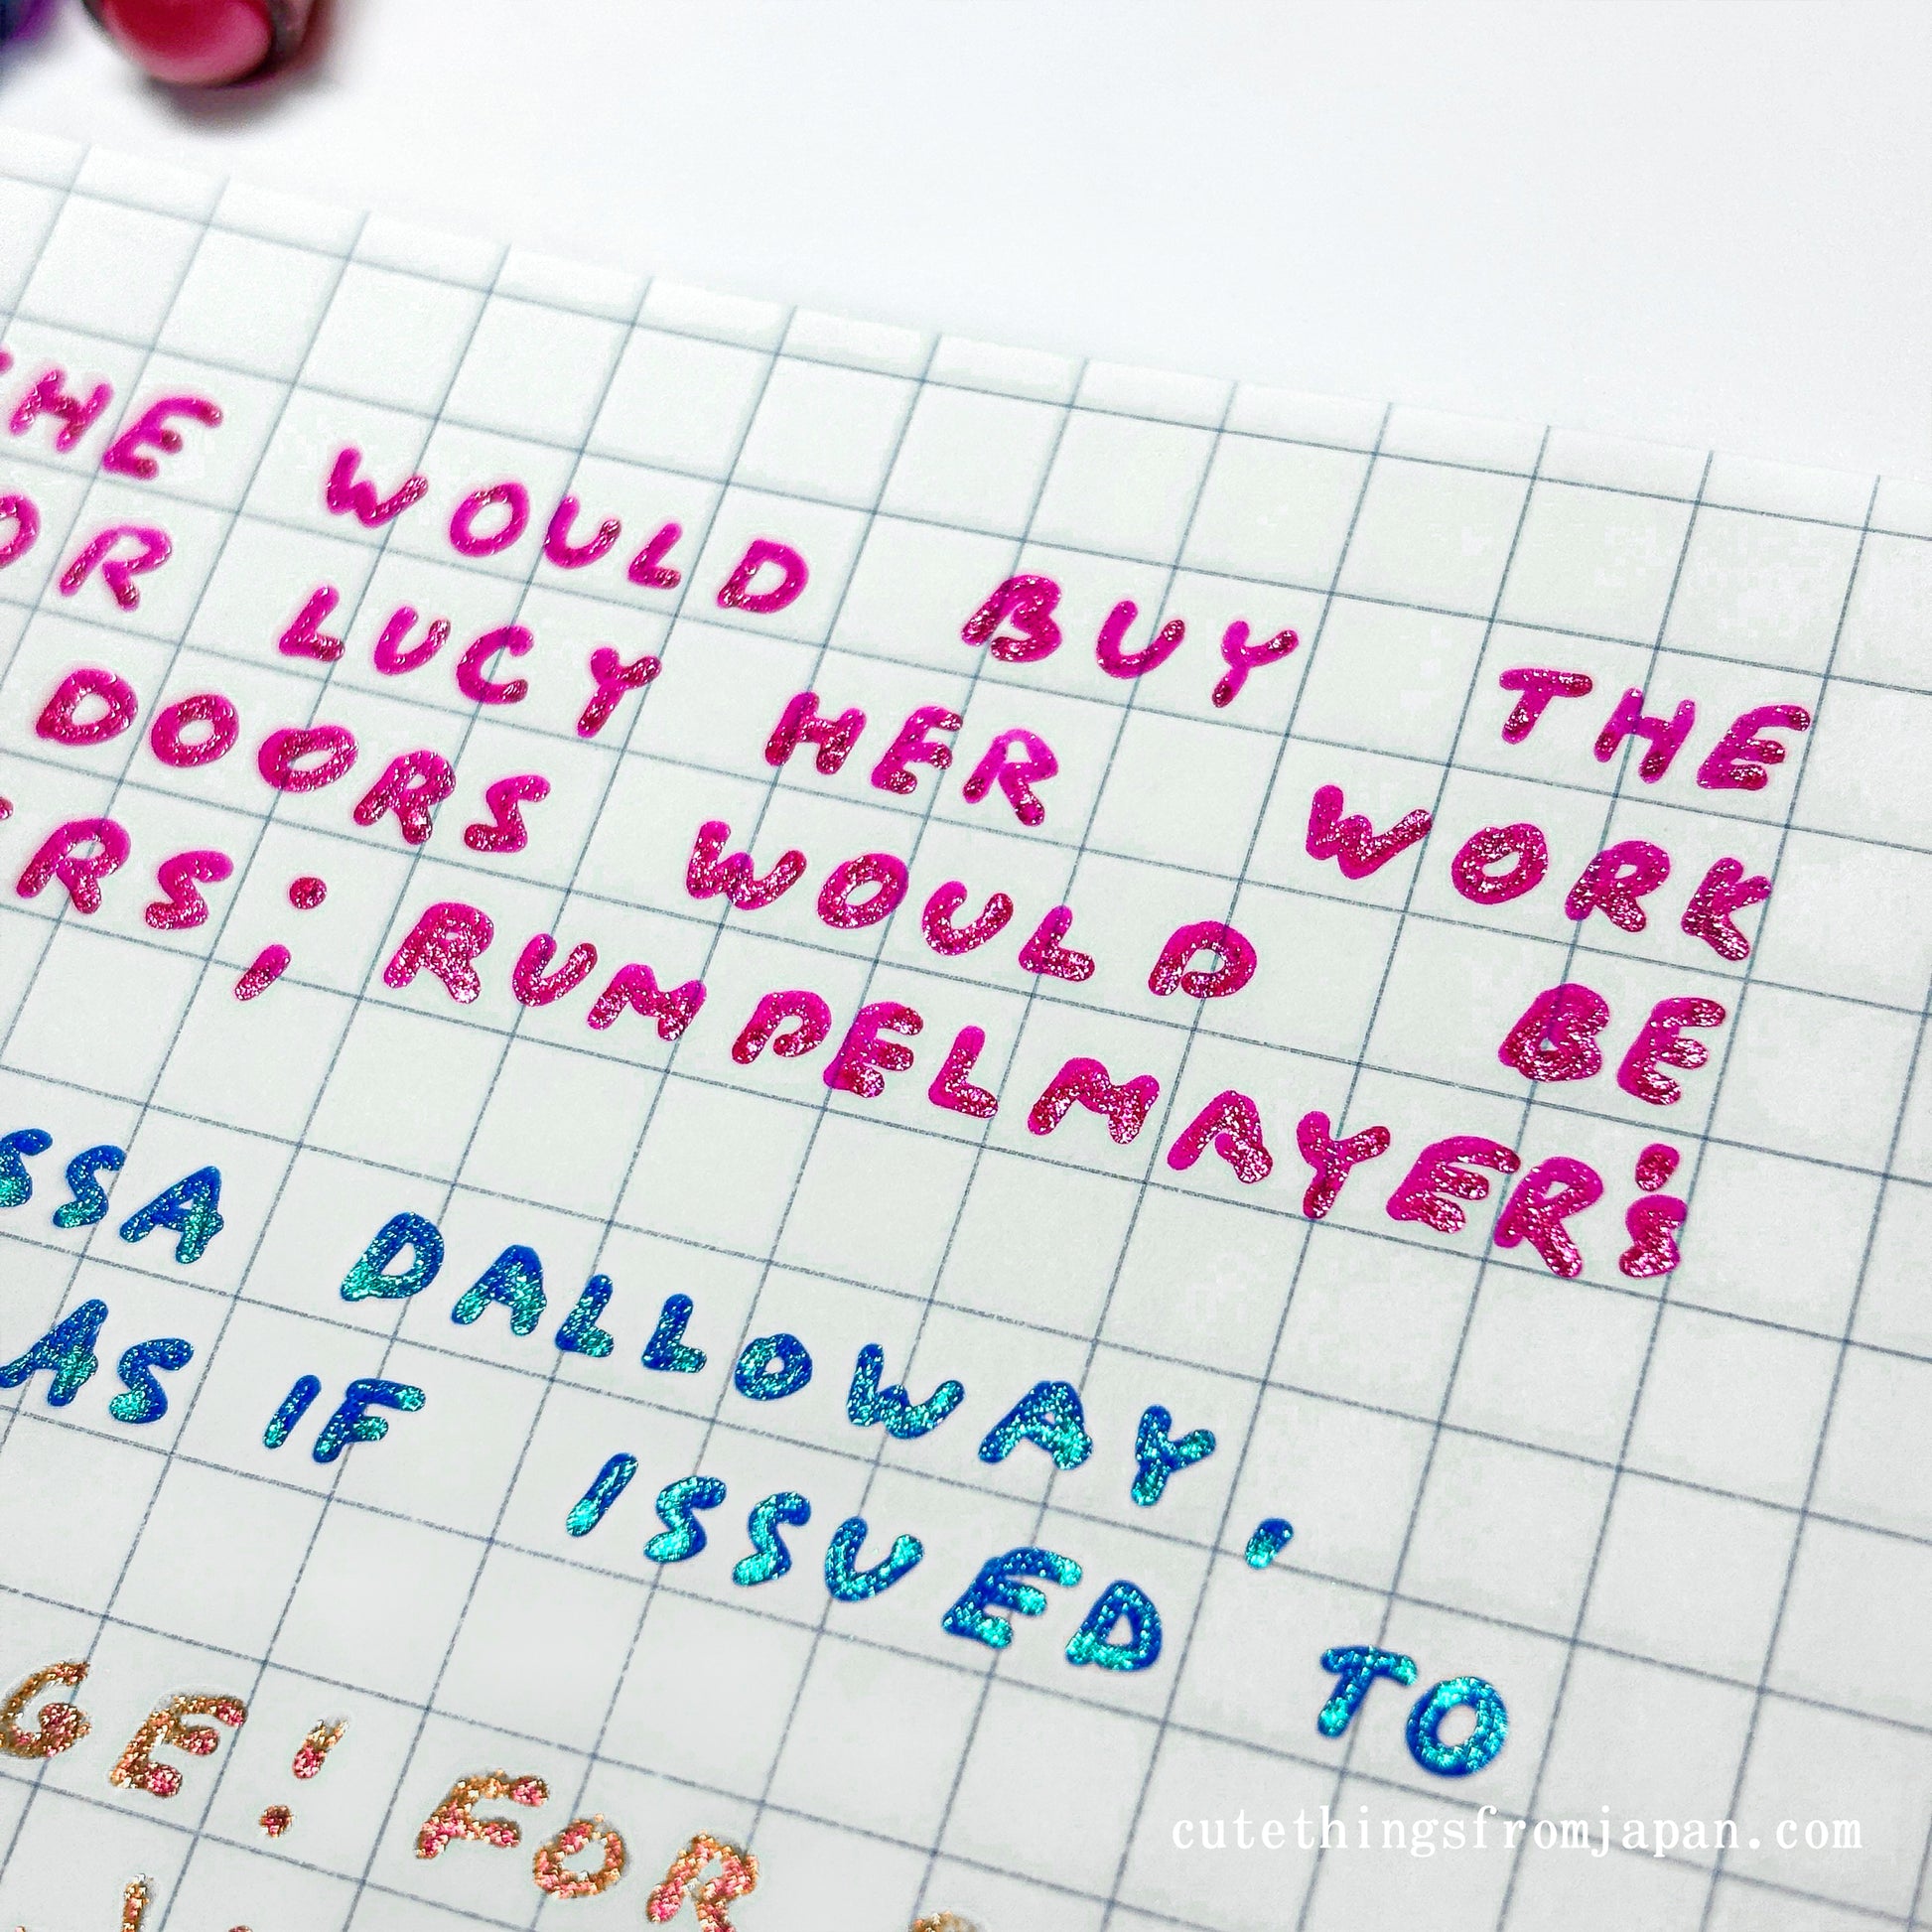 HE WOULD BUY THE
OR LUCY HER WORK
DOORS WOULD BE
RS; RUMPELMAYER'S
SSA DALLOWAY,
AS IF ISSUED TO
GE! FOR
cutethingsfromjapan.com